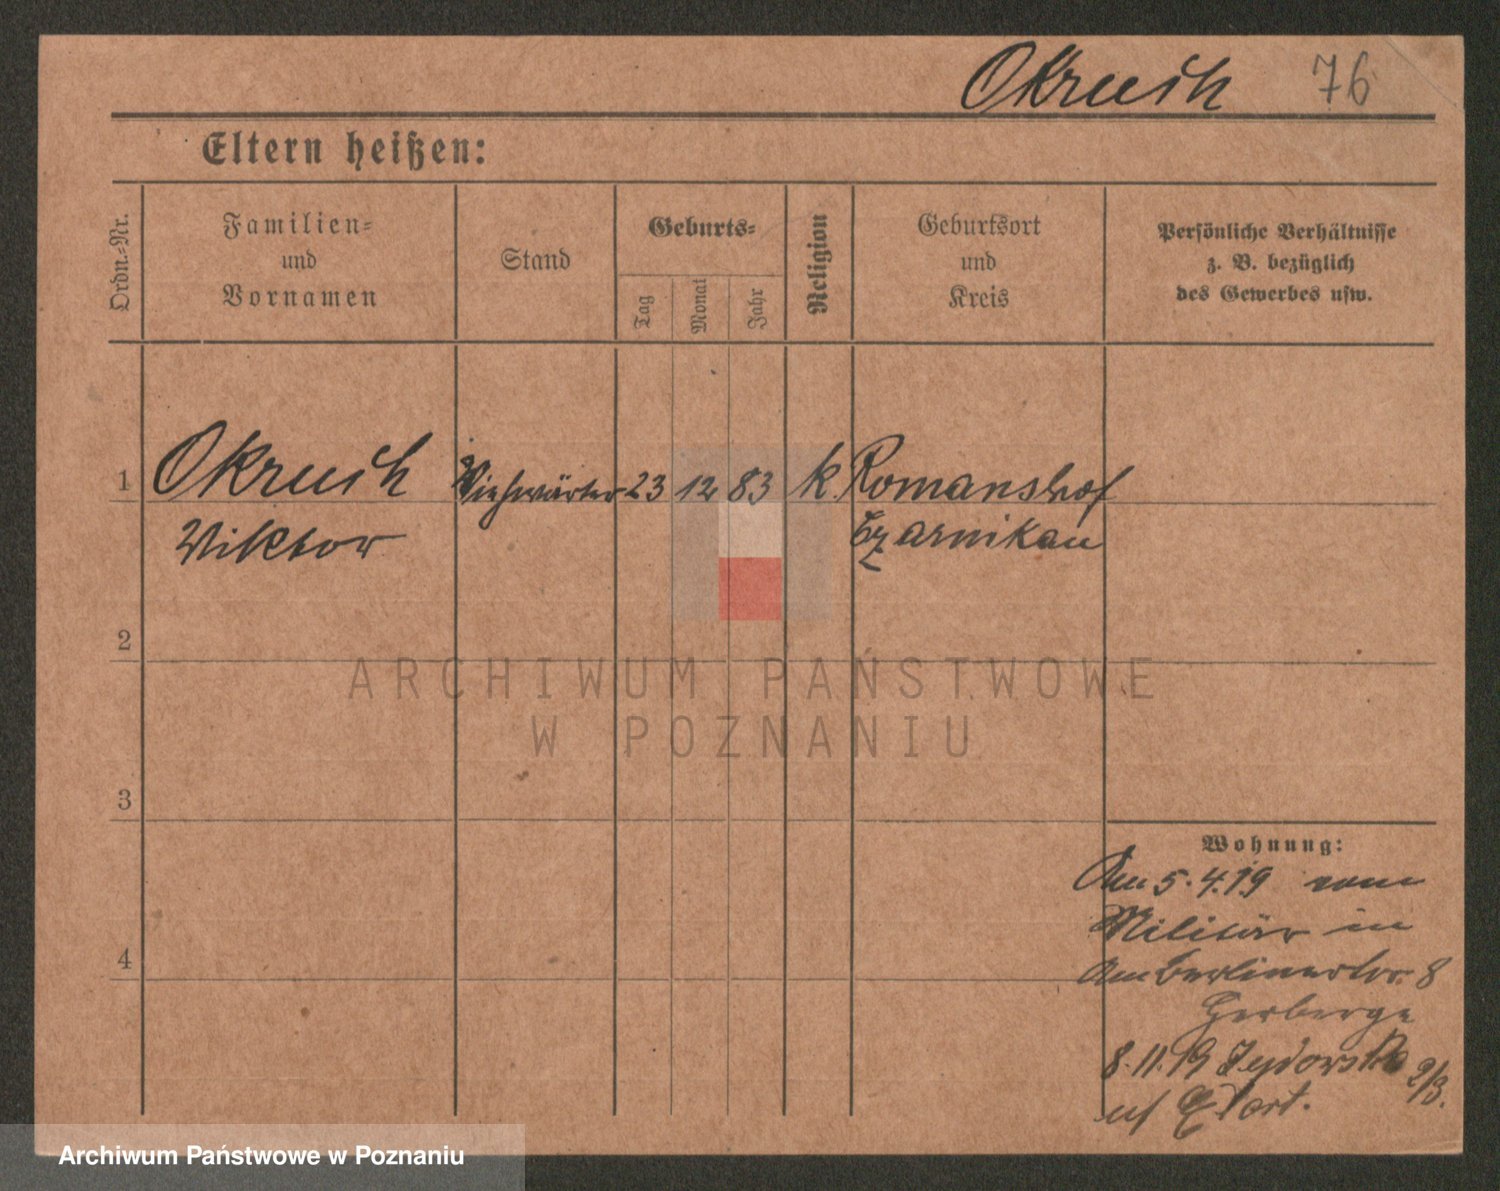 Okrusch 76
Eltern heißen:
Ordn.=Nr.
Familien=
und
Vornamen
Stand
Geburts=
Tag
Monat
Jahr
Religion
Geburtsort
und
Kreis
Persönliche Verhältnisse
z. B. bezüglich
des Gewerbes usw.
1 Okrusch Viehwärter 23 12 83 k. Romanshof
Viktor Czarnikau
2
3
4
Wohnung:
Am 5.4.19 vom
Militär in
Berlinerstr. 8
Herberge
8.11.19 Zydowska 2/3.
ARCHIWUM PAŃSTWOWE
W POZNANIU
Archiwum Państwowe w Poznaniu